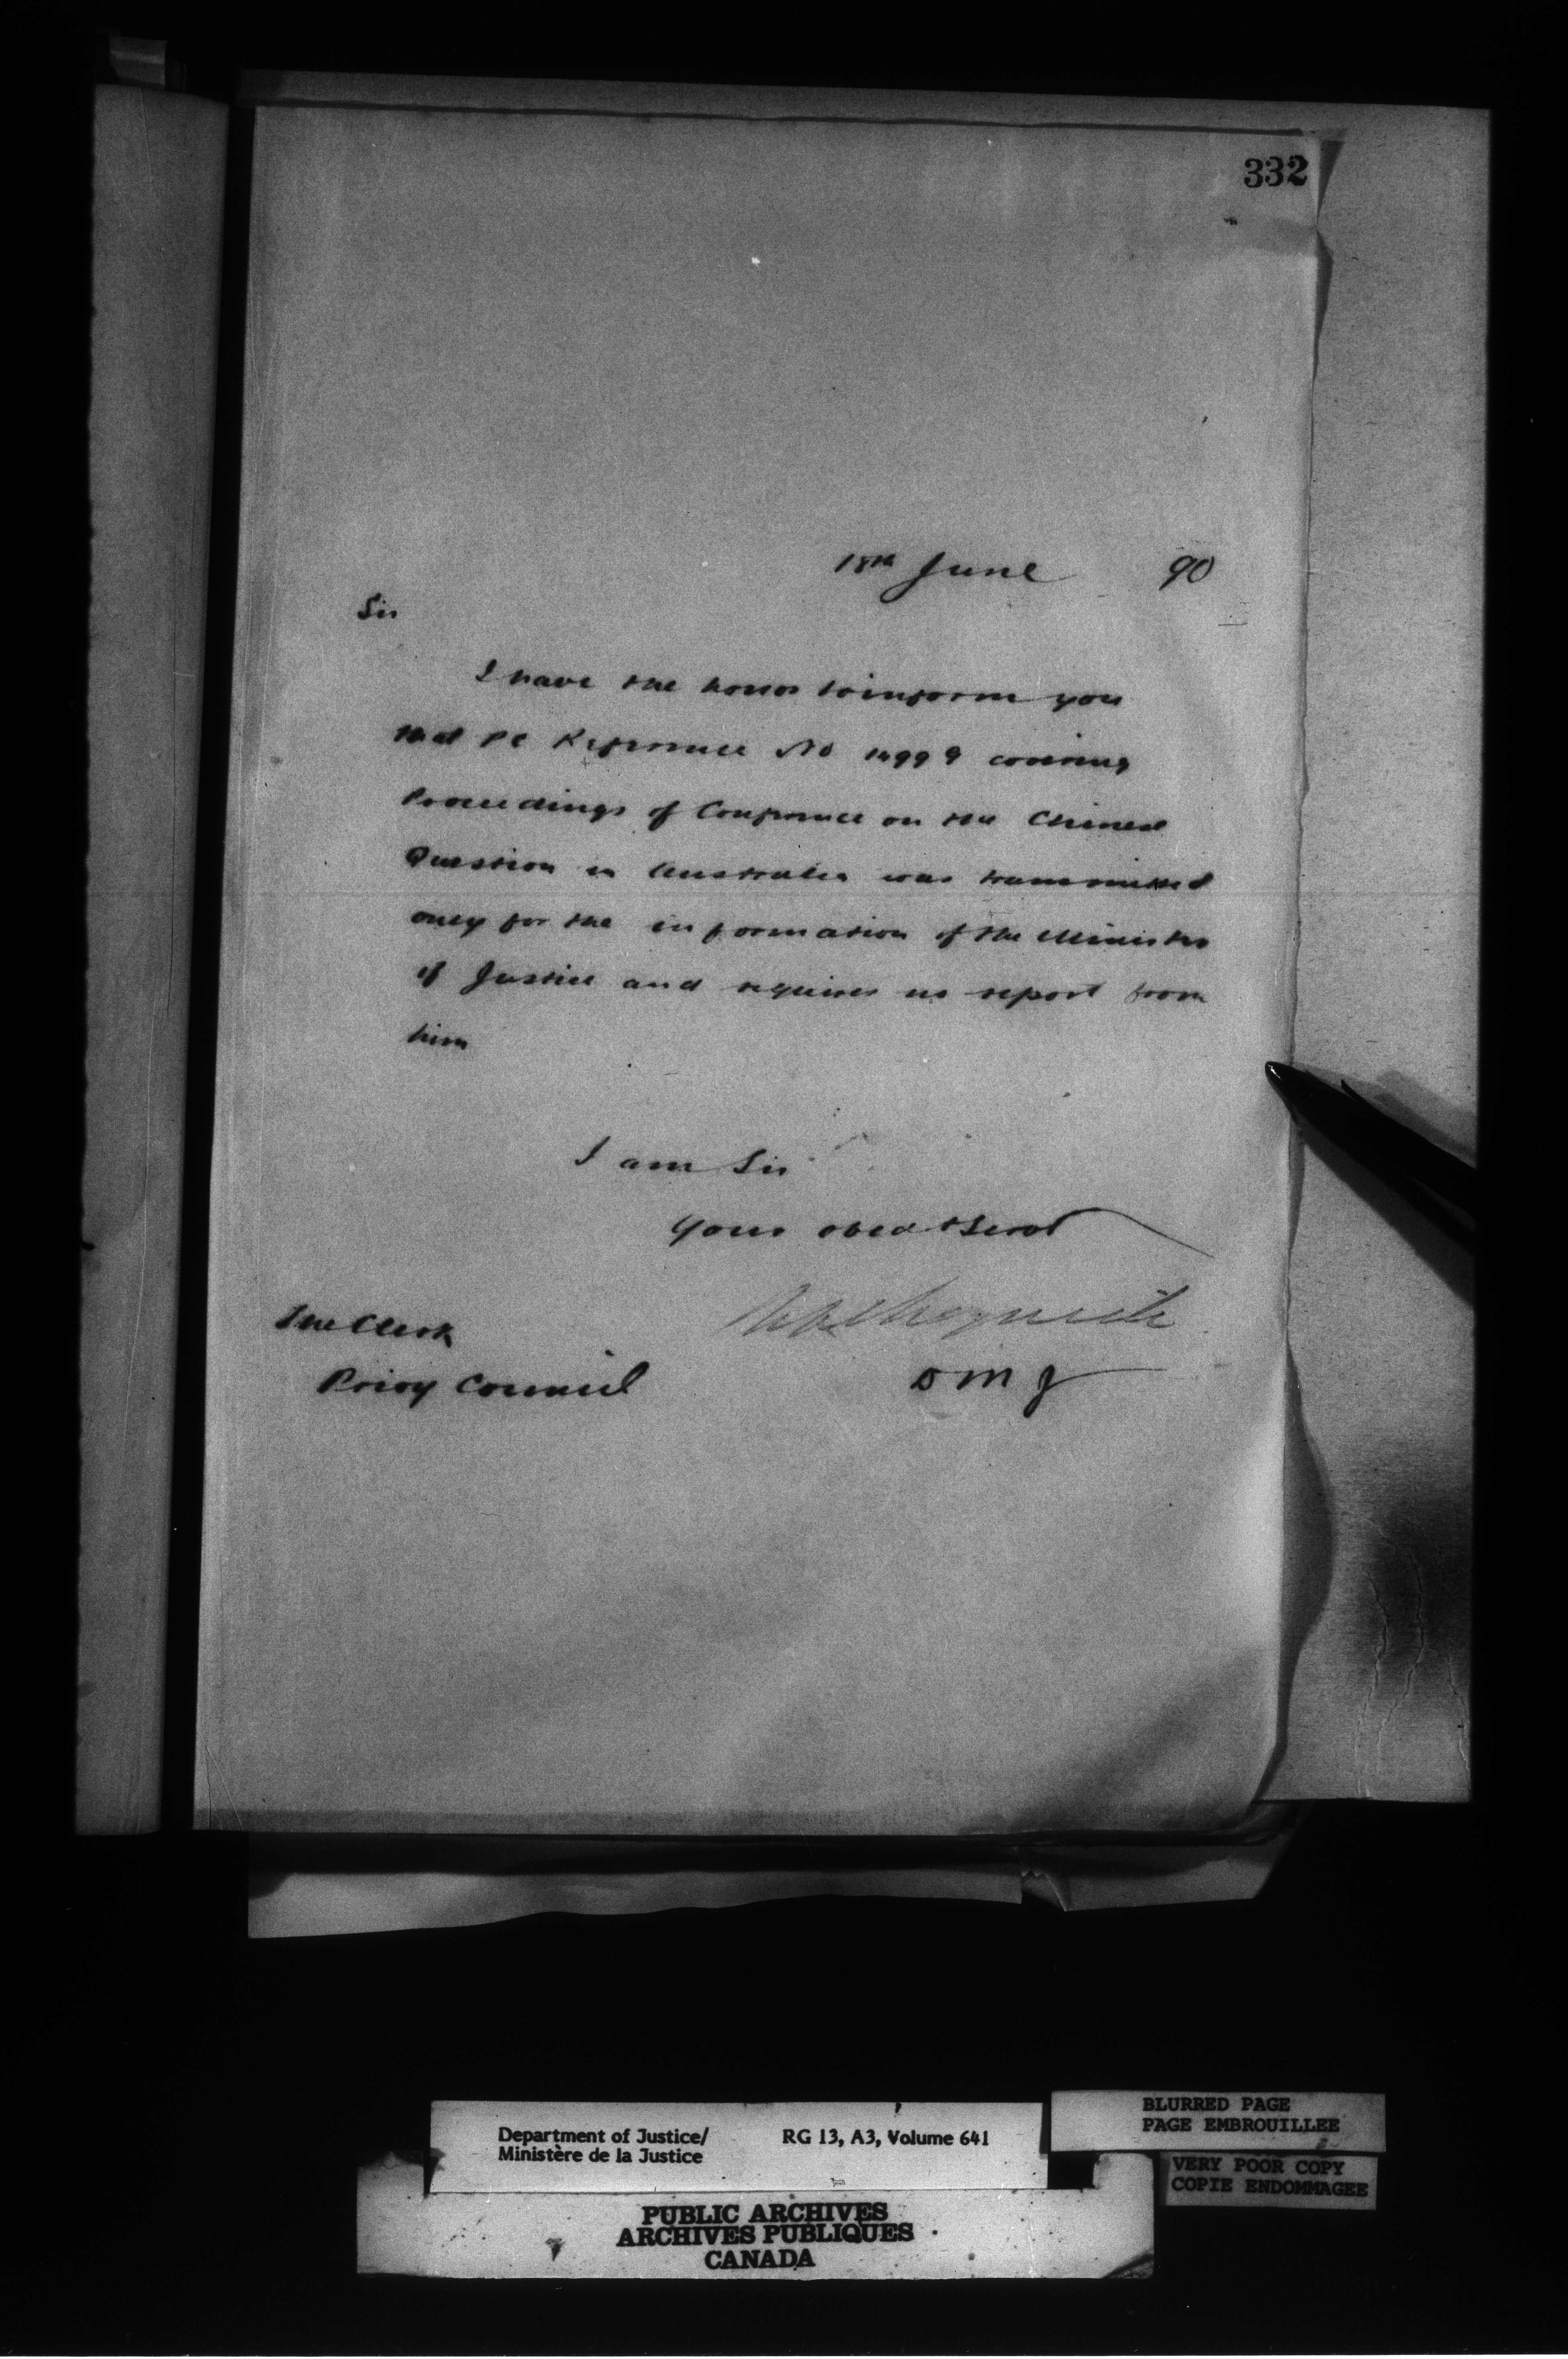 332
18th June 90
Sir
I have the honor to inform you
that PC Reference No 1499 g covering
Proceedings of Conference on the Chinese
Question in Australia was transmitted
only for the information of the Minister
of Justice and requires no report from
him
I am Sir
Your obed t Servt
D M J
The Clerk
Privy Council
BLURRED PAGE
PAGE EMBROUILLEE
Department of Justice/ RG 13, A3, Volume 641
Ministère de la Justice
VERY POOR COPY
COPIE ENDOMMAGEE
PUBLIC ARCHIVES
ARCHIVES PUBLIQUES
CANADA